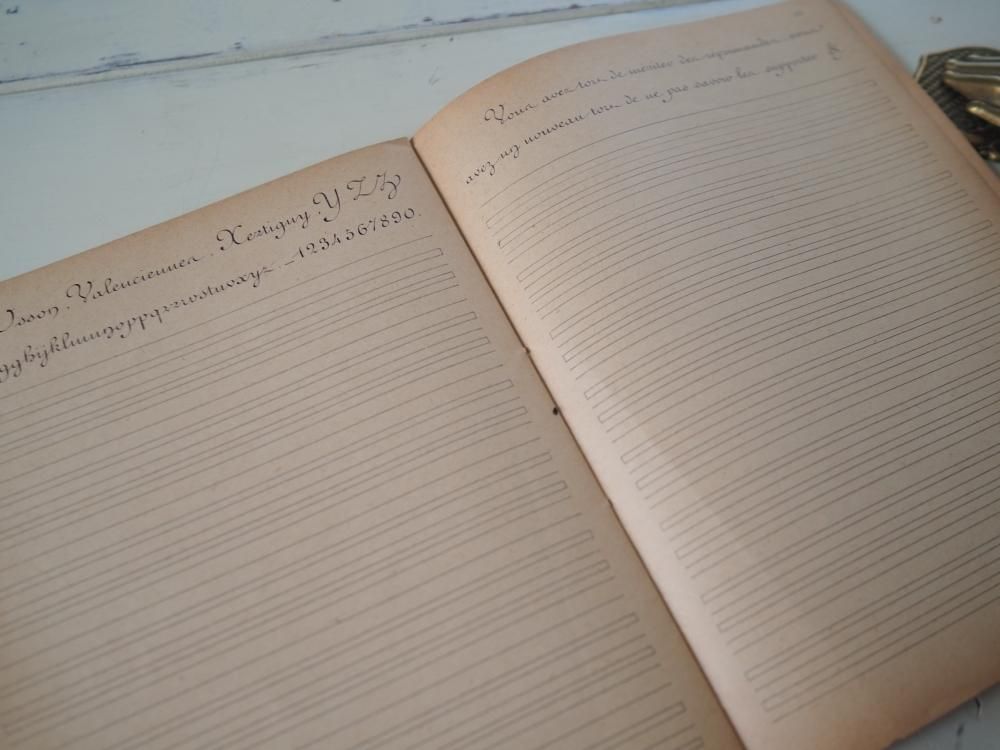 Usson. Valenciennes. Xertigny. Y Z
gghijklmnopqrrsstuvxyz. 1234567890.
Vous avez tort de mériter des réprimandes, vous
avez un nouveau tort de ne pas savoir les supporter